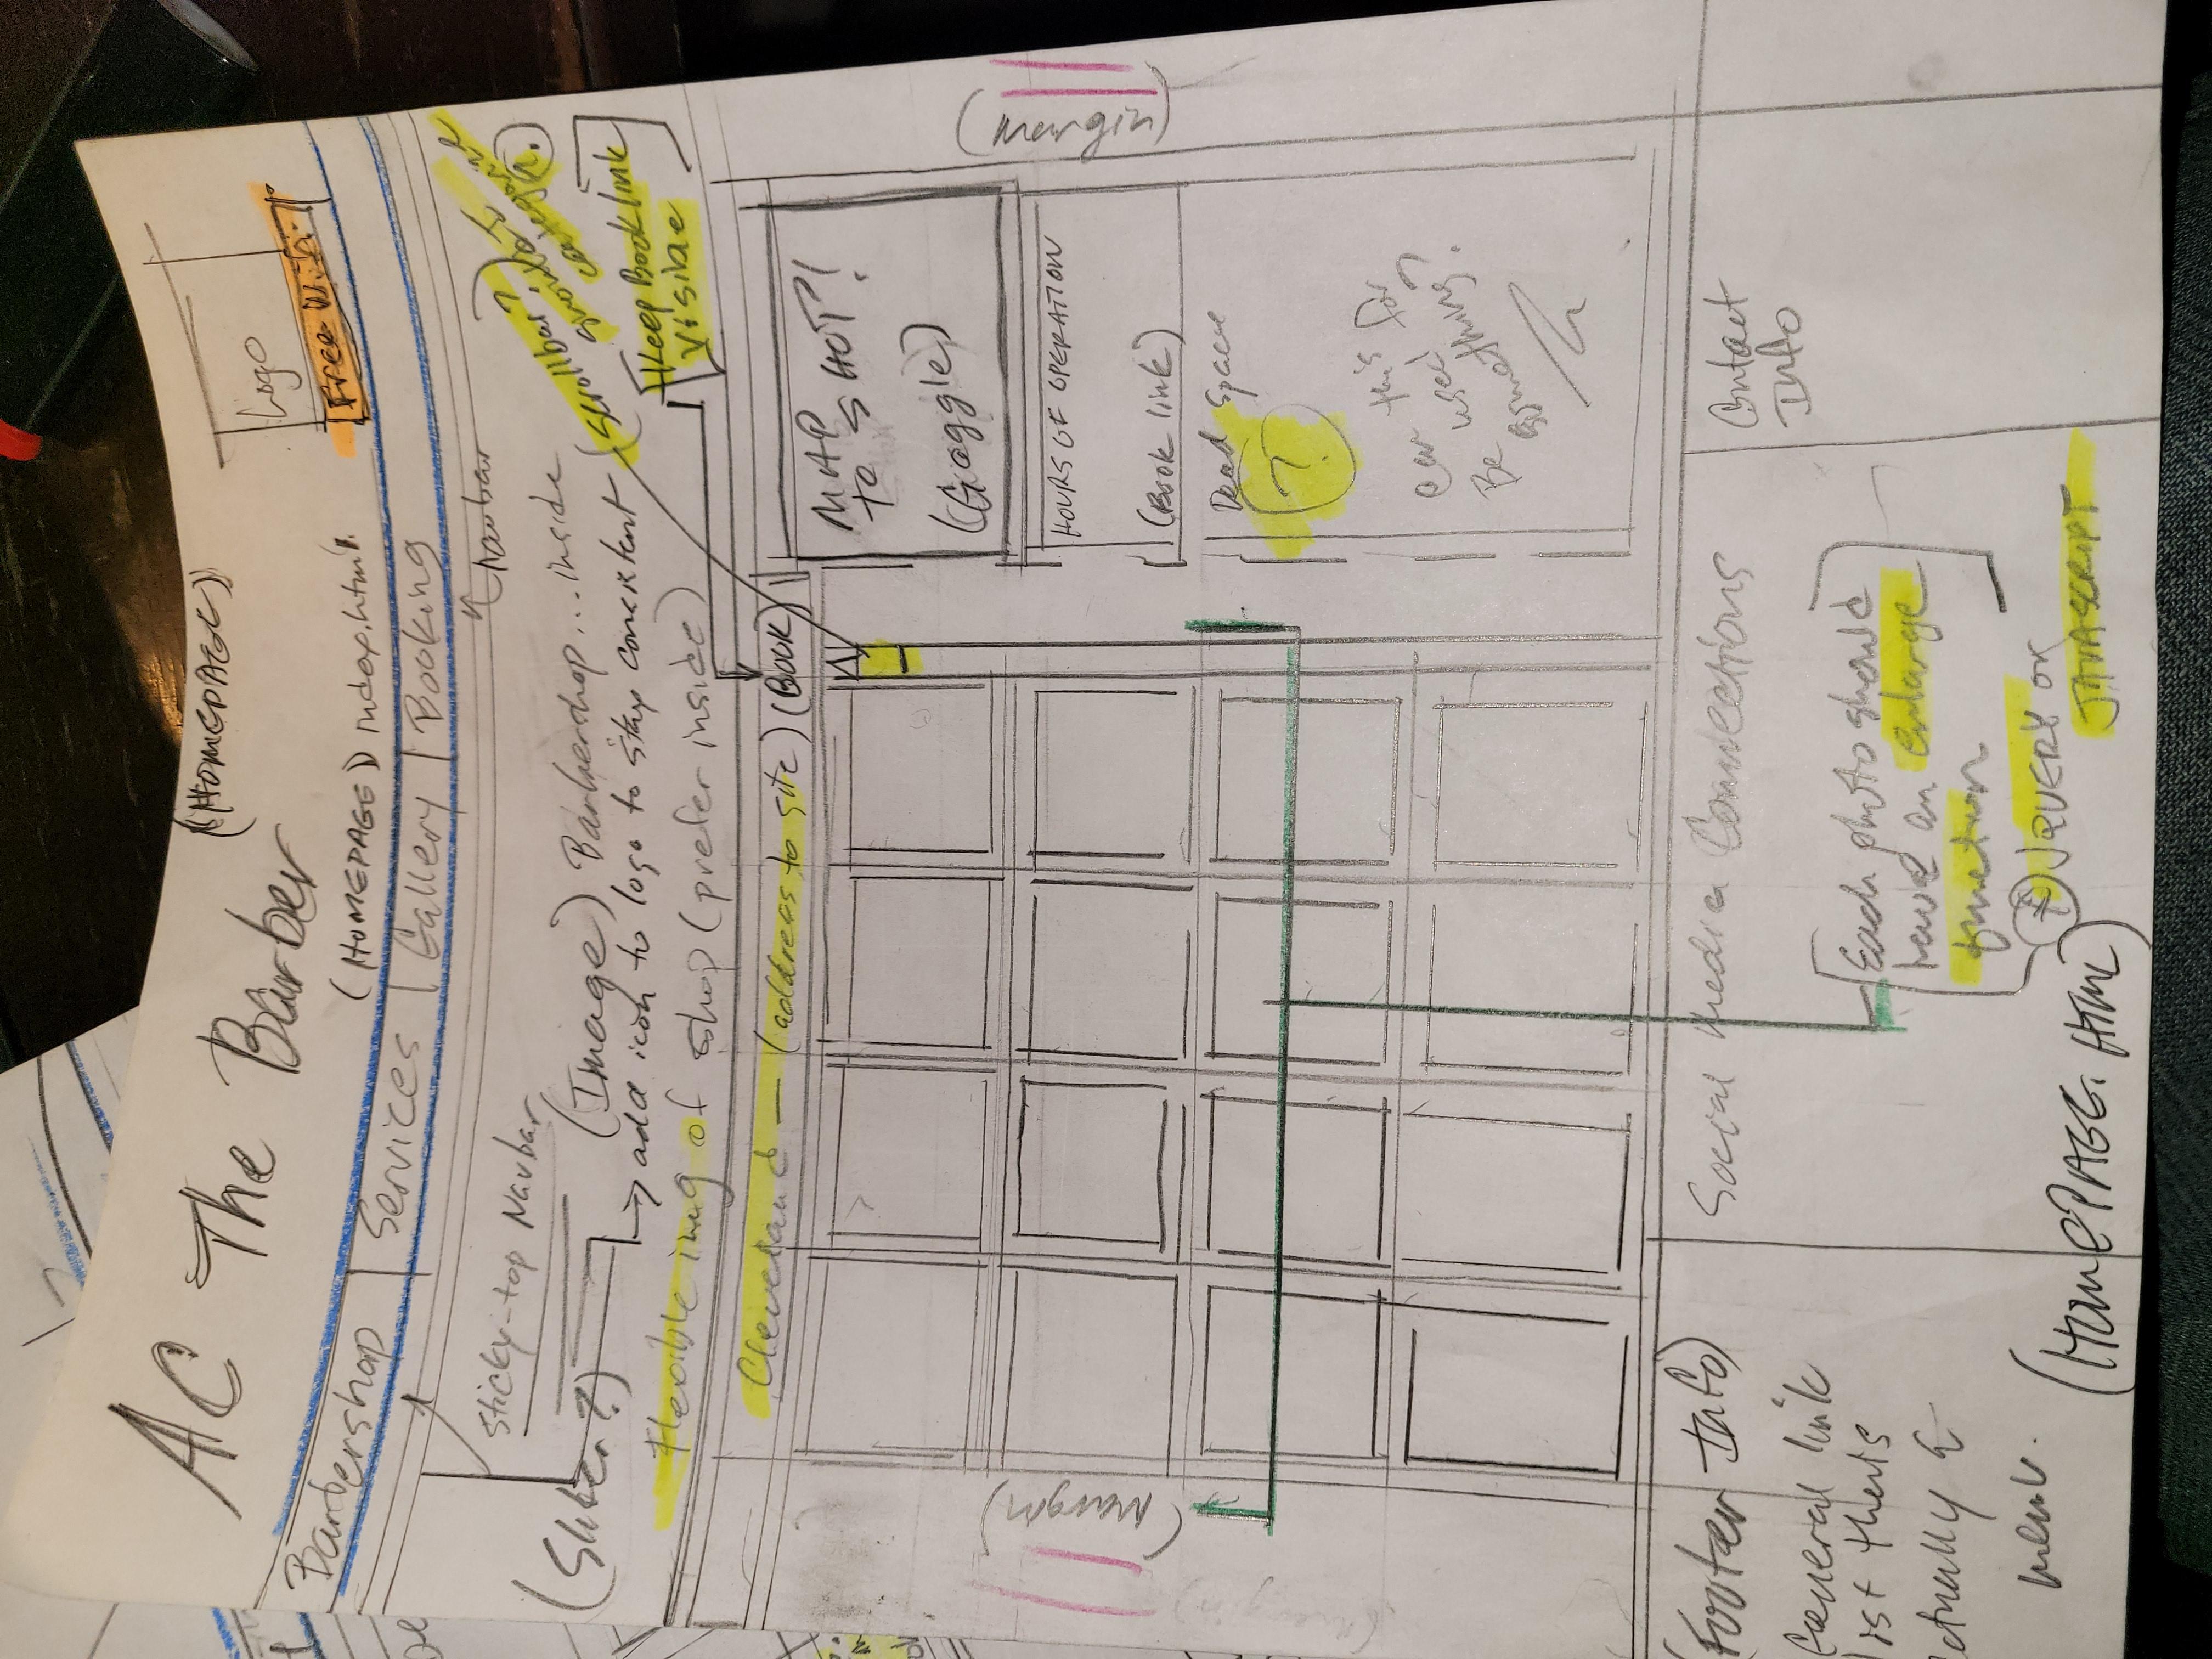 AC The Barber
((HOMEPAGE))
Logo
Free Wifi
(HOMEPAGE) index.html
Barbershop | Services | Gallery | Booking
Navbar
Sticky-top Navbar
(Slider?)
(Image) Barbershop...inside
add icon to logo to stay consistent
Flexible img of shop (prefer inside)
(Scrollbar?)
should I
categorize
?
Keep Book link
Visible
Cleveland — (address to site) (BOOK)
MAP
to SHOP!
(Google)
(Margin)
(margin)
(margin)
HOURS OF OPERATION
(Book link)
Dead Space
?
Can this
Be used for
something?
(Footer Info)
General link
list
actually a
menu.
Social Media Connections
Contact
Info
Each photo should
have an enlarge
function
JQUERY or
JAVASCRIPT
(HOMEPAGE.HTML)